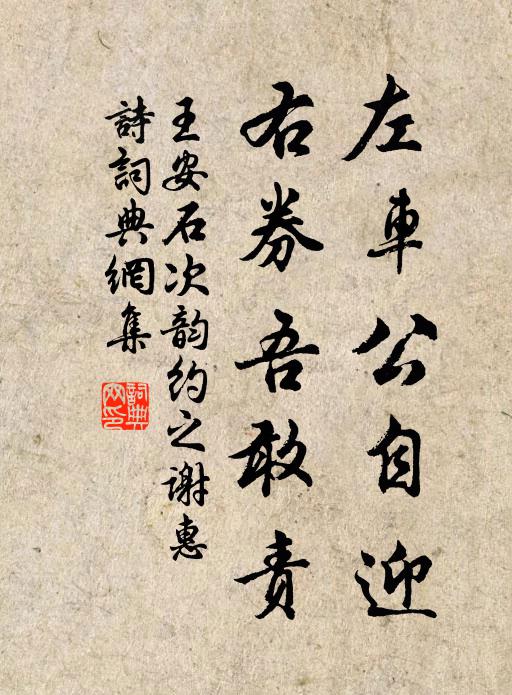 左車公自迎
右券吾敢責
王安石次韵約之謝惠
詩詞典網集
詞典网印